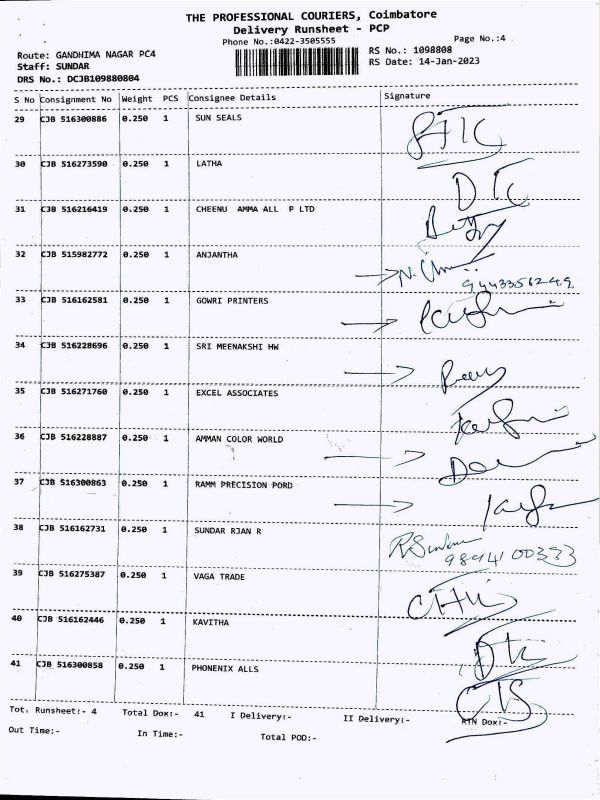 THE PROFESSIONAL COURIERS, Coimbatore
Delivery Runsheet - PCP
Phone No.:0422-3505555
Page No.:4
Route: GANDHIMA NAGAR PC4
RS No.: 1098808
Staff: SUNDAR
RS Date: 14-Jan-2023
DRS No.: DCJB109880804
S No Consignment No Weight PCS Consignee Details Signature
29 CJB 516300886 0.250 1 SUN SEALS
30 CJB 516273590 0.250 1 LATHA
31 CJB 516216419 0.250 1 CHEENU AMMA ALL P LTD
32 CJB 515982772 0.250 1 ANJANTHA
9443356249
33 CJB 516162581 0.250 1 GOWRI PRINTERS
34 CJB 516228696 0.250 1 SRI MEENAKSHI HW
35 CJB 516271760 0.250 1 EXCEL ASSOCIATES
36 CJB 516228887 0.250 1 AMMAN COLOR WORLD
37 CJB 516300863 0.250 1 RAMM PRECISION PORD
38 CJB 516162731 0.250 1 SUNDAR RJAN R
9894100333
39 CJB 516275387 0.250 1 VAGA TRADE
40 CJB 516162446 0.250 1 KAVITHA
41 CJB 516300858 0.250 1 PHONENIX ALLS
Tot. Runsheet:- 4 Total Dox:- 41 I Delivery:- II Delivery:- RTN Dox:-
Out Time:- In Time:- Total POD:-